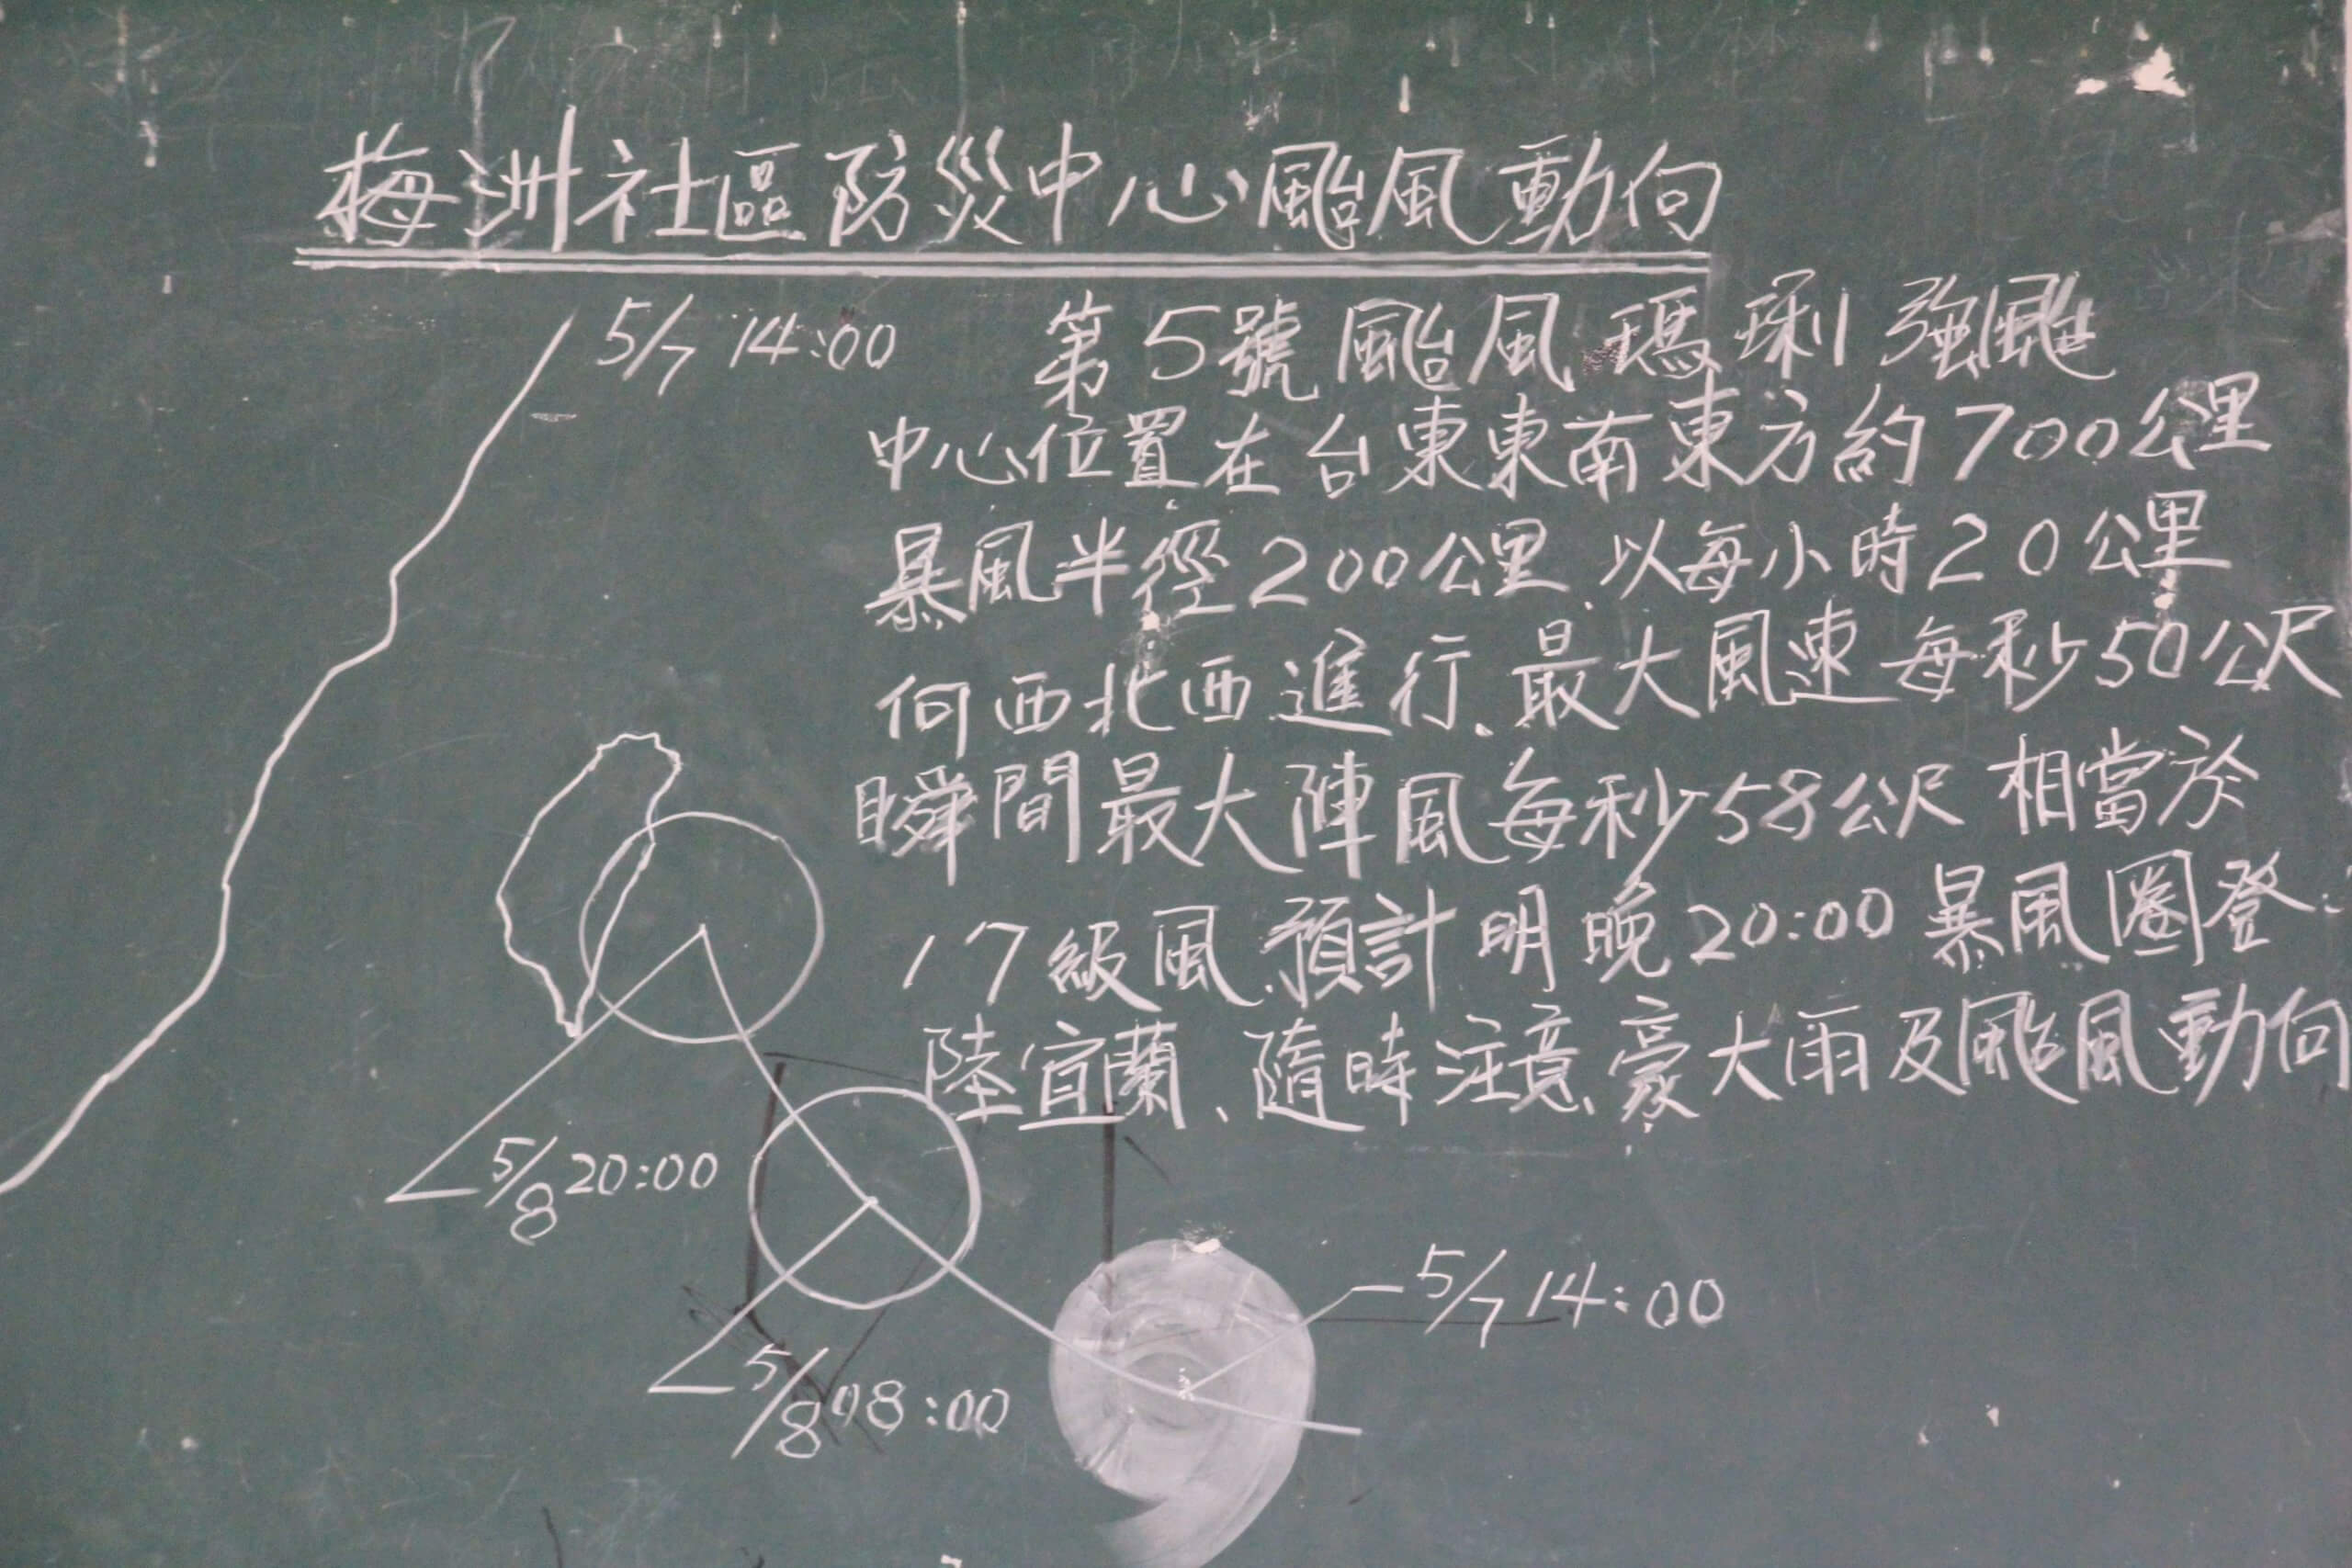 梅洲社區防災中心颱風動向
5/7 14:00 第5號颱風瑪琍強颱
中心位置在台東東南東方約700公里
暴風半徑200公里.以每小時20公里
向西北西進行.最大風速每秒50公尺
瞬間最大陣風每秒58公尺相當於
17級風.預計明晚20:00暴風圈登
陸宜蘭、隨時注意豪大雨及颱風動向
5/8 20:00
5/7 14:00
5/8 08:00